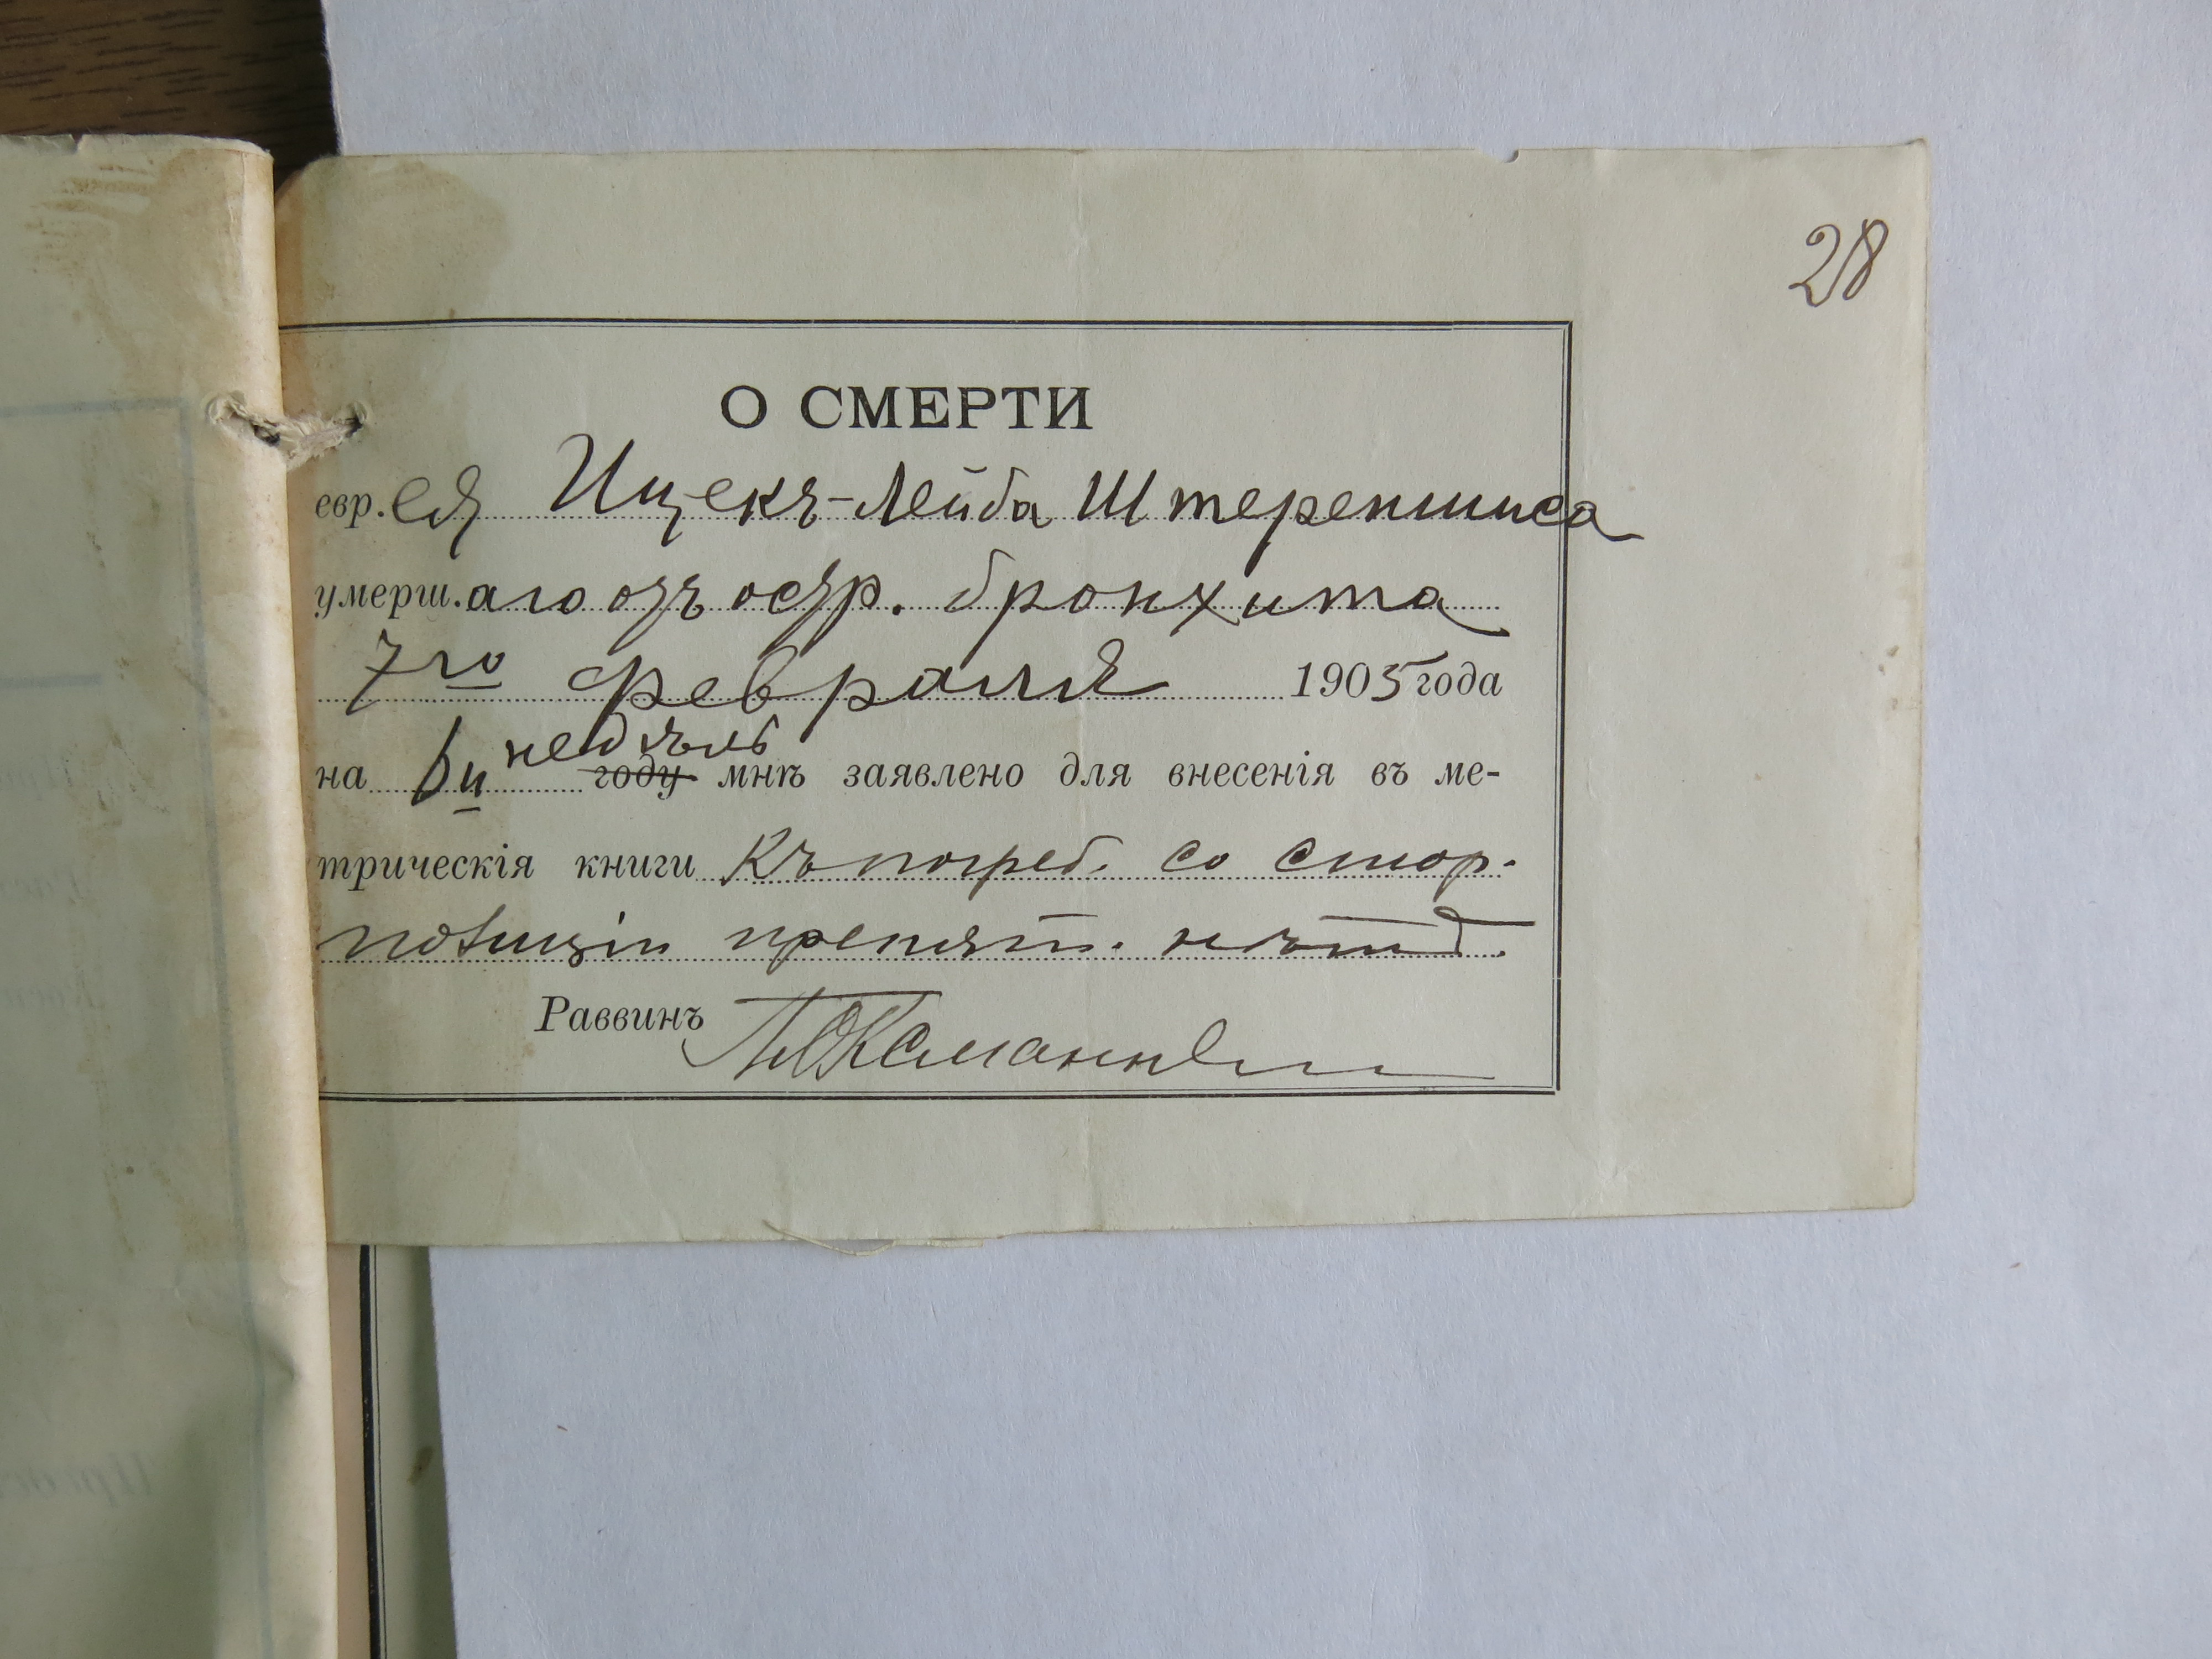 28
О СМЕРТИ
евр.ея Ицекъ-Лейба Штереншиса
умерш.аго отъ остр. бронхита
7го февраля 1905 года
на 6й недѣлѣ году мнѣ заявлено для внесенія въ ме-
трическія книги Къ погреб. со стор.
полиціи препят. нѣтъ.
Раввинъ